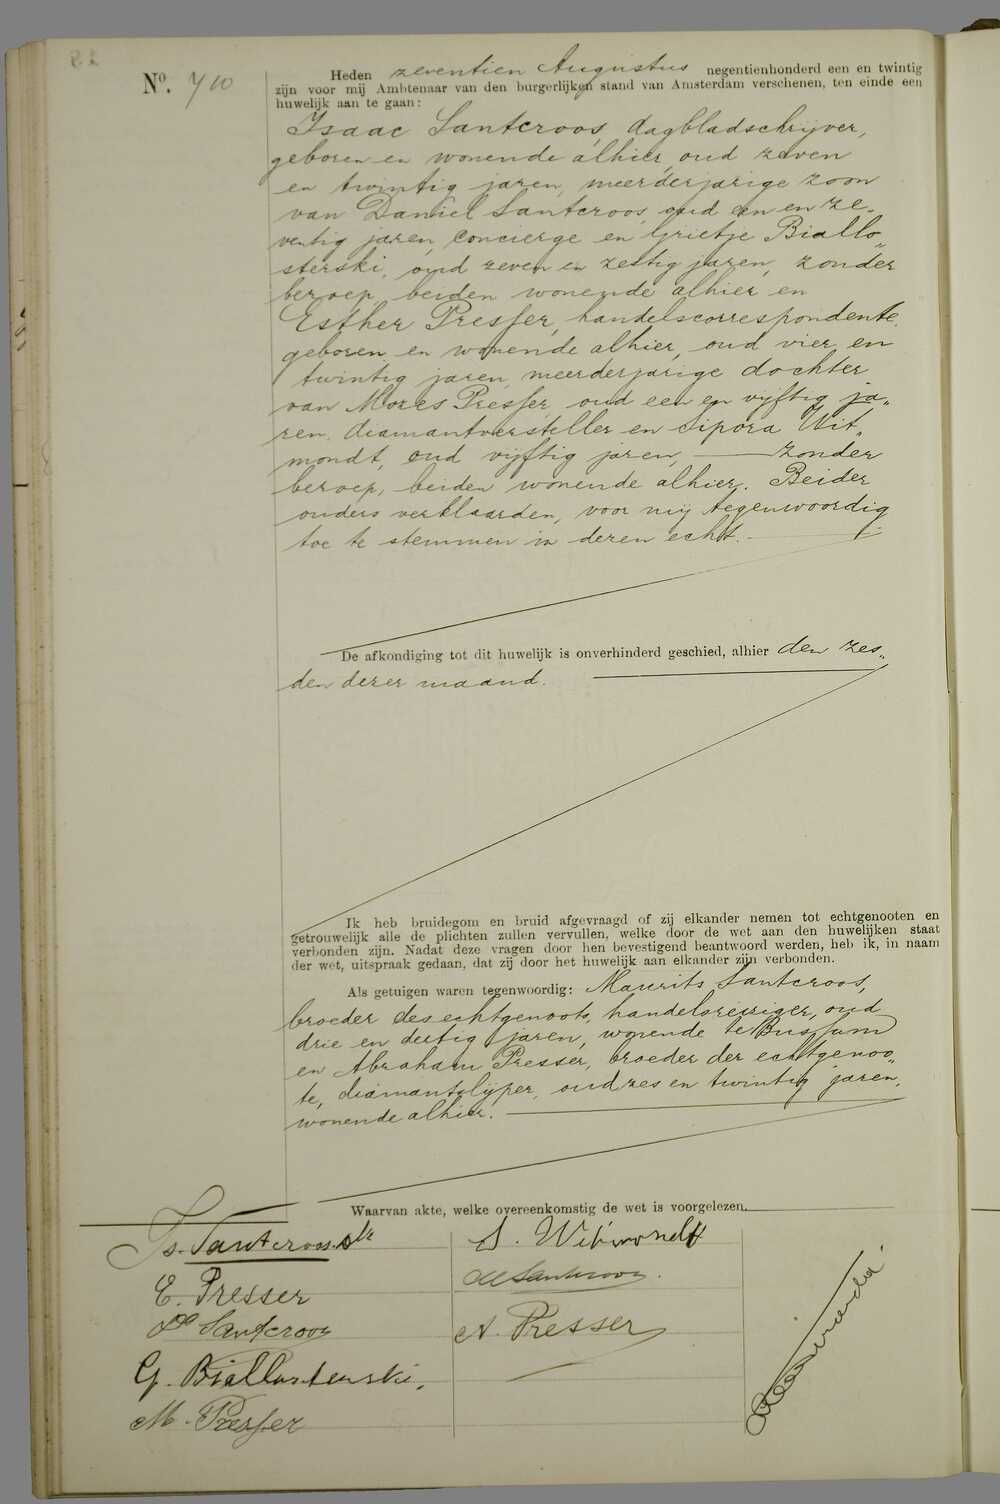 No. 710
Heden zeventien Augustus negentienhonderd een en twintig
zijn voor mij Ambtenaar van den burgerlijken stand van Amsterdam verschenen, ten einde een
huwelijk aan te gaan:
Isaac Santcroos, dagbladschrijver,
geboren en wonende alhier, oud zeven
en twintig jaren, meerderjarige zoon
van Daniel Santcroos, oud een en ze-
ventig jaren, concierge en Grietje Biallo-
sterski, oud zeven en zestig jaren, zonder
beroep, beiden wonende alhier en
Esther Presser, handelscorrespondente,
geboren en wonende alhier, oud vier en
twintig jaren, meerderjarige dochter
van Mozes Presser, oud een en vijftig ja-
ren, diamantversteller en Sipora Wit-
mondt, oud vijftig jaren, zonder
beroep, beiden wonende alhier. Beider
ouders verklaarden, voor mij tegenwoordig
toe te stemmen in deren echt.
De afkondiging tot dit huwelijk is onverhinderd geschied, alhier den zes-
den dezer maand.
Ik heb bruidegom en bruid afgevraagd of zij elkander nemen tot echtgenooten en
getrouwelijk alle de plichten zullen vervullen, welke door de wet aan den huwelijken staat
verbonden zijn. Nadat deze vragen door hen bevestigend beantwoord werden, heb ik, in naam
der wet, uitspraak gedaan, dat zij door het huwelijk aan elkander zijn verbonden.
Als getuigen waren tegenwoordig: Maurits Santcroos,
broeder des echtgenoots, handelsreiziger, oud
drie en dertig jaren, wonende te Bussum
en Abraham Presser, broeder der echtgenoo-
te, diamantslijper, oud zes en twintig jaren,
wonende alhier.
Waarvan akte, welke overeenkomstig de wet is voorgelezen.
Is. Santcroos
E. Presser
Santcroos
G. Biallosterski,
M. Presser
S. Witmondt
Santcroos.
A. Presser